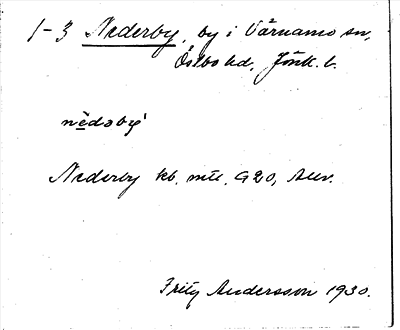 1-3 Nederby, by i Värnamo sn,
Östbo hd, Jönk. l.
nèdabý
Nederby kb. mtl. G20, Auv.
Fritz Andersson 1930.